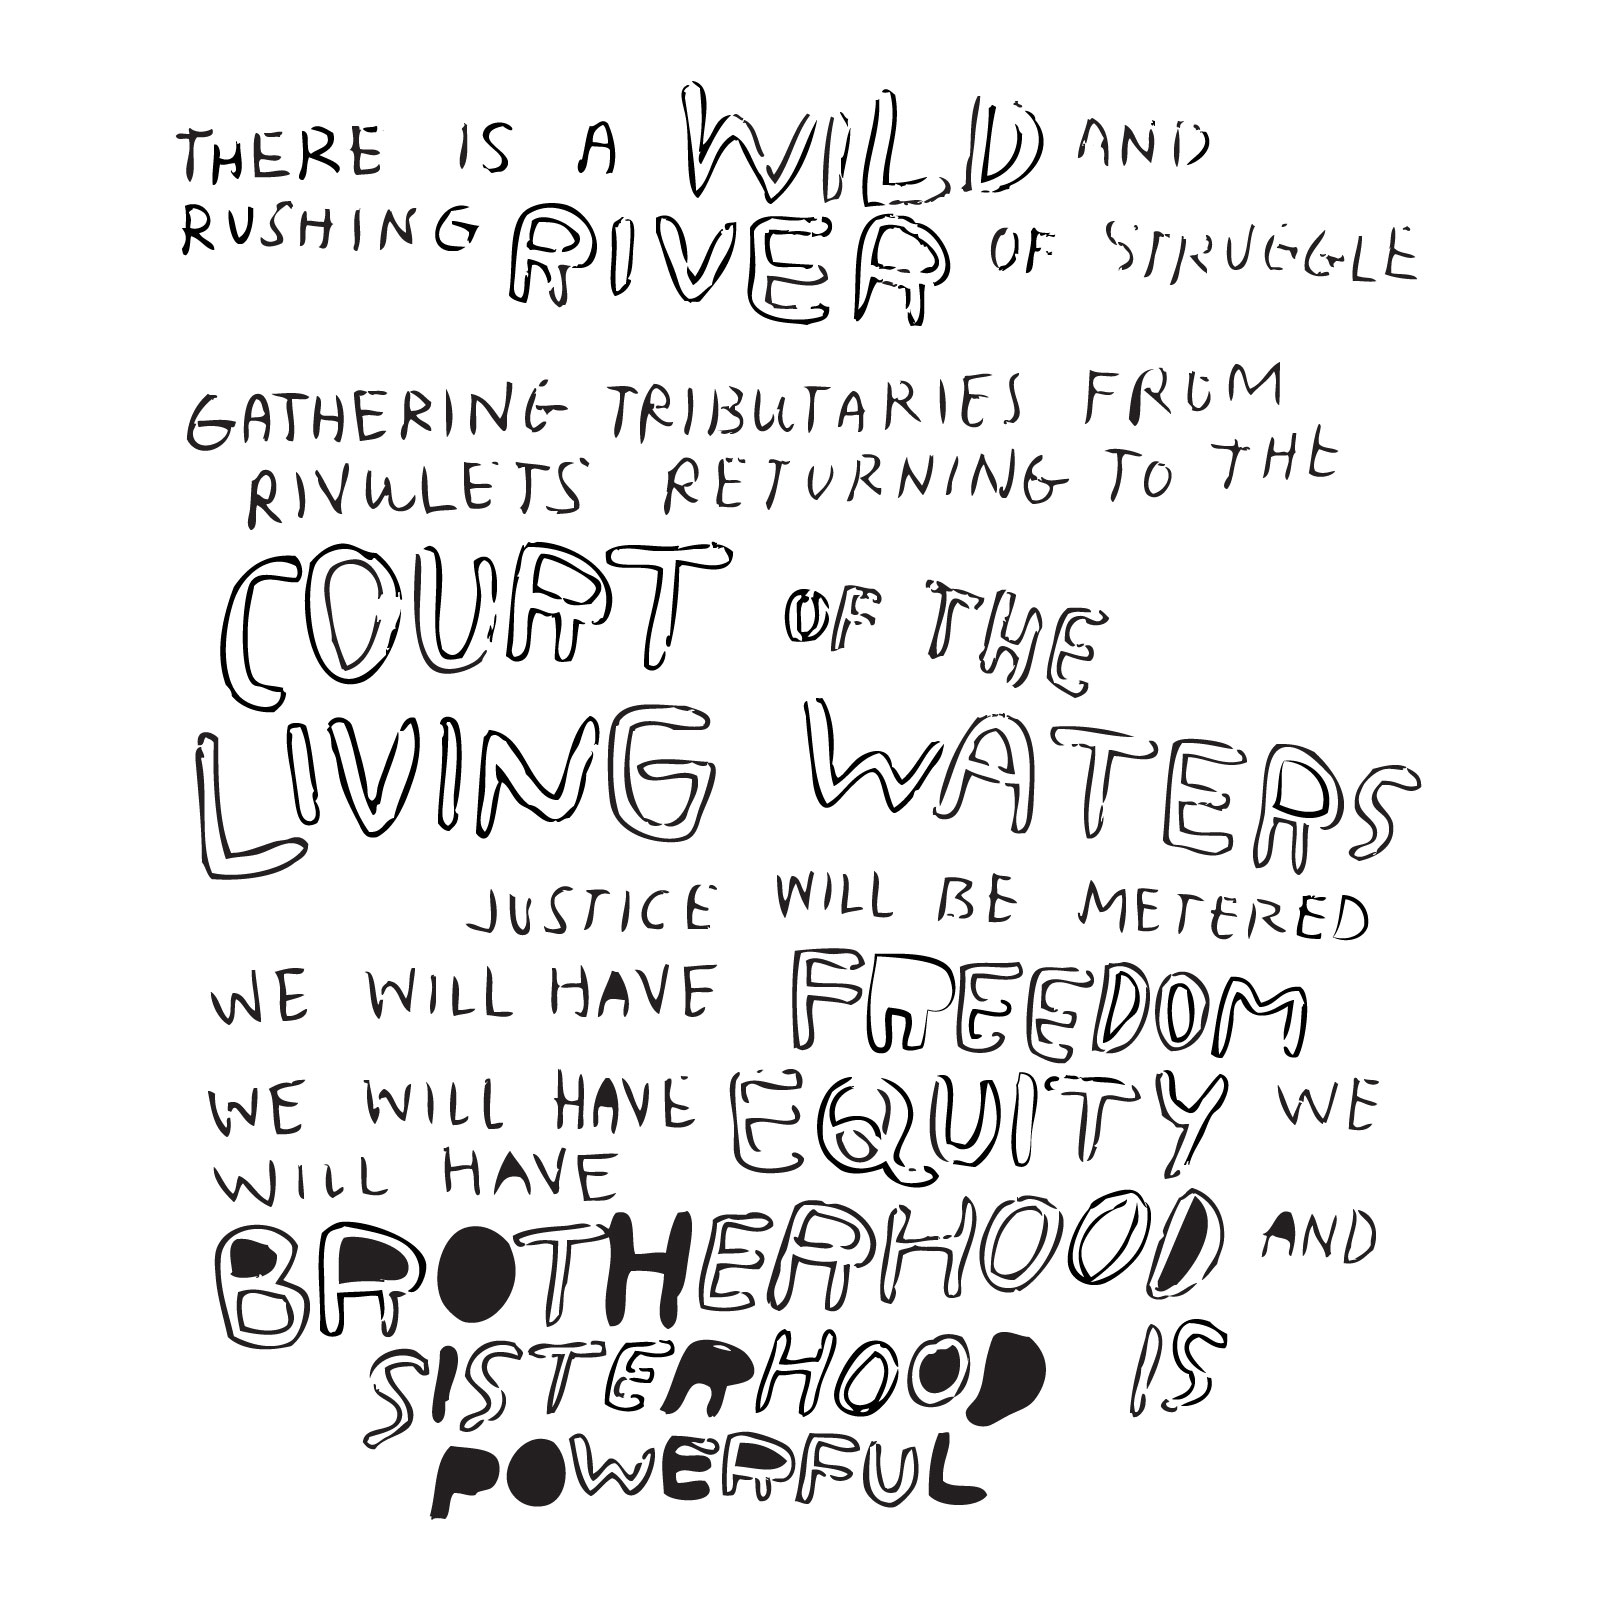 THERE IS A WILD AND
RUSHING RIVER OF STRUGGLE
GATHERING TRIBUTARIES FROM
RIVULETS RETURNING TO THE
COURT OF THE
LIVING WATERS
JUSTICE WILL BE METERED
WE WILL HAVE FREEDOM
WE WILL HAVE EQUITY WE
WILL HAVE
BROTHERHOOD AND
SISTERHOOD IS
POWERFUL